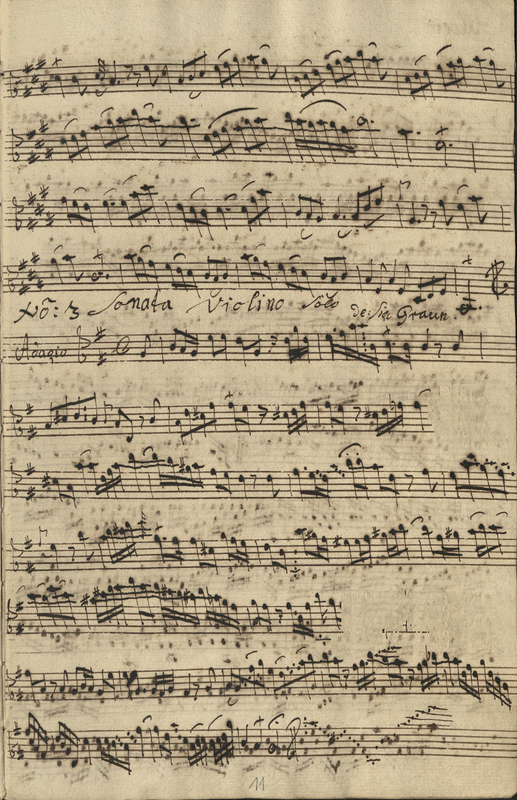 No: 3 Sonata Violino Solo de Sig Graun
Adagio
11